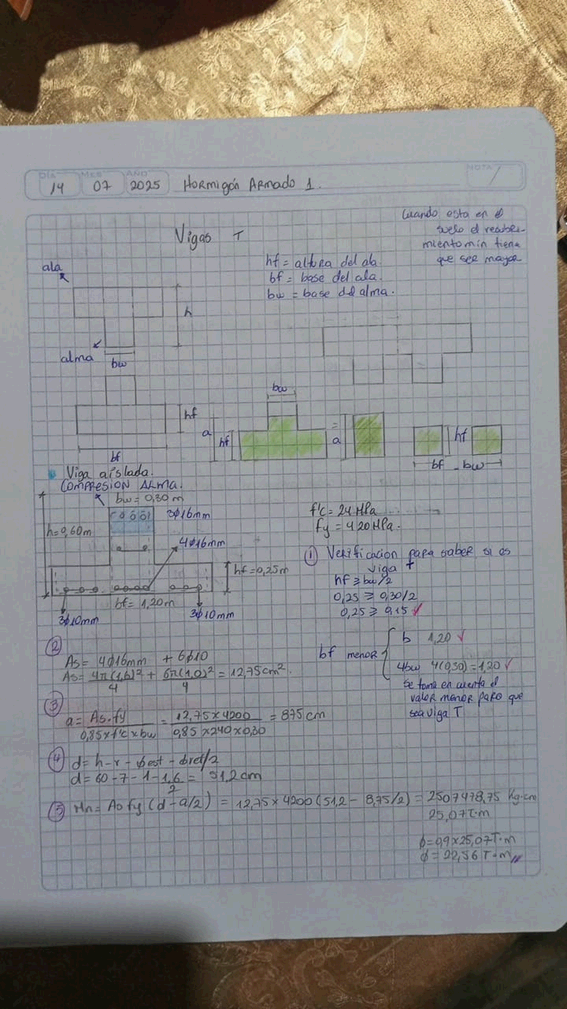 DIA MES AÑO NOTA
14 07 2025 Hormigón Armado 1.
Cuando esta en el
suelo el recubri-
miento min tiene
que ser mayor
Vigas T
hf = altura del ala
bf = base del ala.
bw = base del alma.
ala
h
alma
bw
hf
bf
bw
a
hf
a
hf
bf - bw
Viga aislada.
COMPRESION ALMA.
bw = 0,30 m
3ϕ16mm
h=0,60m
4ϕ16mm
hf=0,25m
bf = 1,20m
3ϕ10mm
3ϕ10mm
f'c = 24 MPa
fy = 420 MPa.
① Verificacion para saber si es
viga T
hf ≥ bw/2
0,25 ≥ 0,30/2
0,25 ≥ 0,15 ✓
bf menor { b 1,20 ✓
4bw 4(0,30) = 1,20 ✓
Se toma en cuenta el
valor menor para que
sea viga T
②
As = 4ϕ16mm + 6ϕ10
As = 4π(1,6)²/4 + 6π(1,0)²/4 = 12,75cm²
③
a = As.fy / 0,85 x f'c x bw = 12,75 x 4200 / 0,85 x 240 x 0,30 = 8,75 cm
④ d = h - r - ϕest - ϕref/2
d = 60 - 7 - 1 - 1,6/2 = 51,2 cm
⑤ Mn = As fy (d - a/2) = 12,75 x 4200 (51,2 - 8,75/2) = 2507478,75 Kg.cm
25,07 T.m
ϕ = 0,9 x 25,07 T.m
ϕ = 22,56 T.m